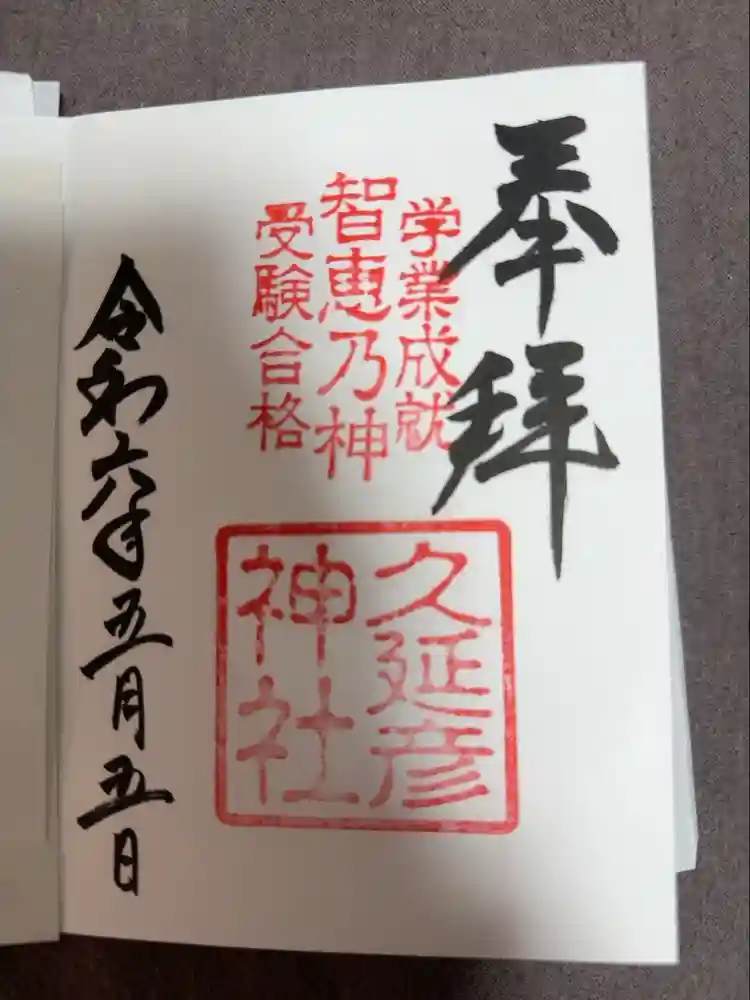 奉拝
学業成就
智恵乃神
受験合格
久延彦
神社
令和六年五月五日